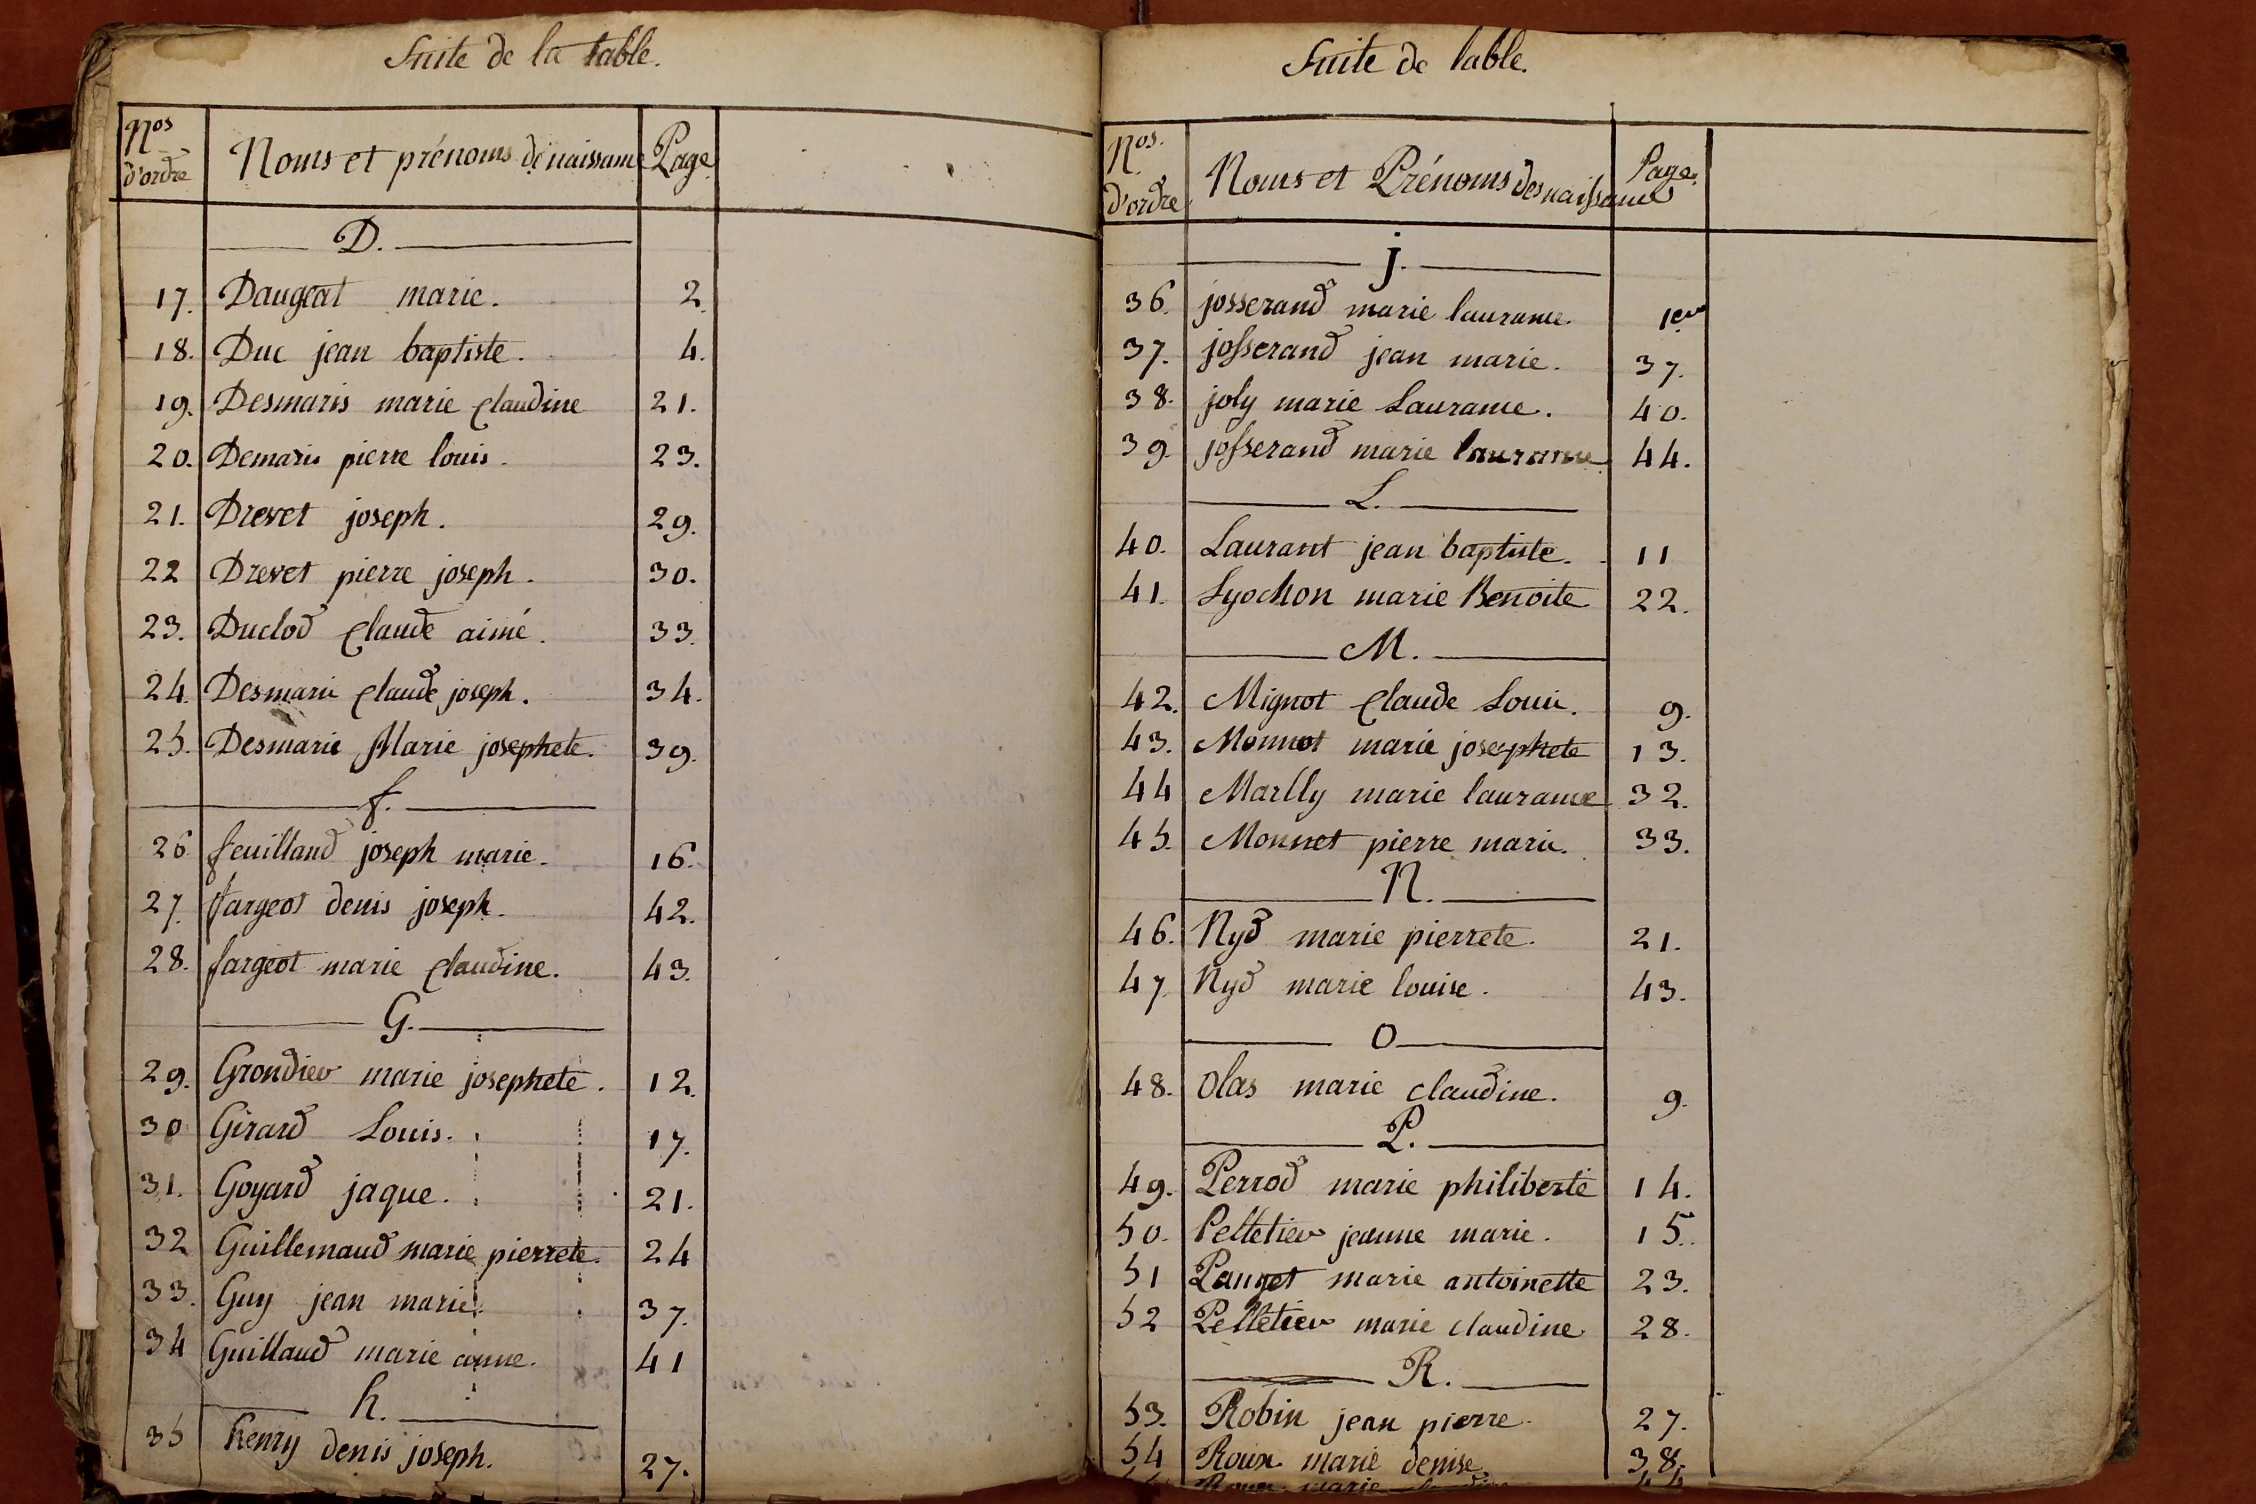 Suite de la table.
Nos d'ordre Noms et prénoms de naissance Page
D.
17. Daugeat marie. 2.
18. Duc jean baptiste. 4.
19. Desmaris marie Claudine 21.
20. Demaris pierre louis. 23.
21. Drevet joseph. 29.
22 Drevet pierre joseph. 30.
23. Duclod Claude aimé. 33.
24. Desmaris Claude joseph. 34.
25. Desmaris Marie josephete. 39.
f.
26 feuilland joseph marie. 16.
27. fargeot denis joseph. 42.
28. fargeot marie Claudine. 43.
G.
29. Grondier marie josephete. 12.
30 Girard Louis. 17.
31. Goyard jaque. 21.
32 Guillemaud marie pierrete. 24
33. Guy jean marie. 37.
34 Guillaud marie anne. 41
h.
35 henry denis joseph. 27.
Suite de table.
Nos. d'ordre Noms et Prénoms des naissances Page.
j.
36. josserand marie laurance. 1er
37. josserand jean marie. 37.
38. joly marie Laurance. 40.
39. josserand marie laurance 44.
L.
40. Laurant jean baptiste. 11
41. Lyochon marie Benoite 22.
M.
42. Mignot Claude Louis. 9.
43. Monnot marie josephete 13.
44 Marlly marie laurance 32.
45. Monnet pierre marie. 33.
N.
46. Nyd marie pierrete. 21.
47. Nyd marie louise. 43.
O
48. Olas marie claudine. 9.
P.
49. Perrod marie philiberte 14.
50. Pelletier jeanne marie. 15.
51 Panget marie antoinette 23.
52 Pelletier marie claudine 28.
R.
53. Robin jean pierre. 27.
54 Roux marie denise 38.
marie 44